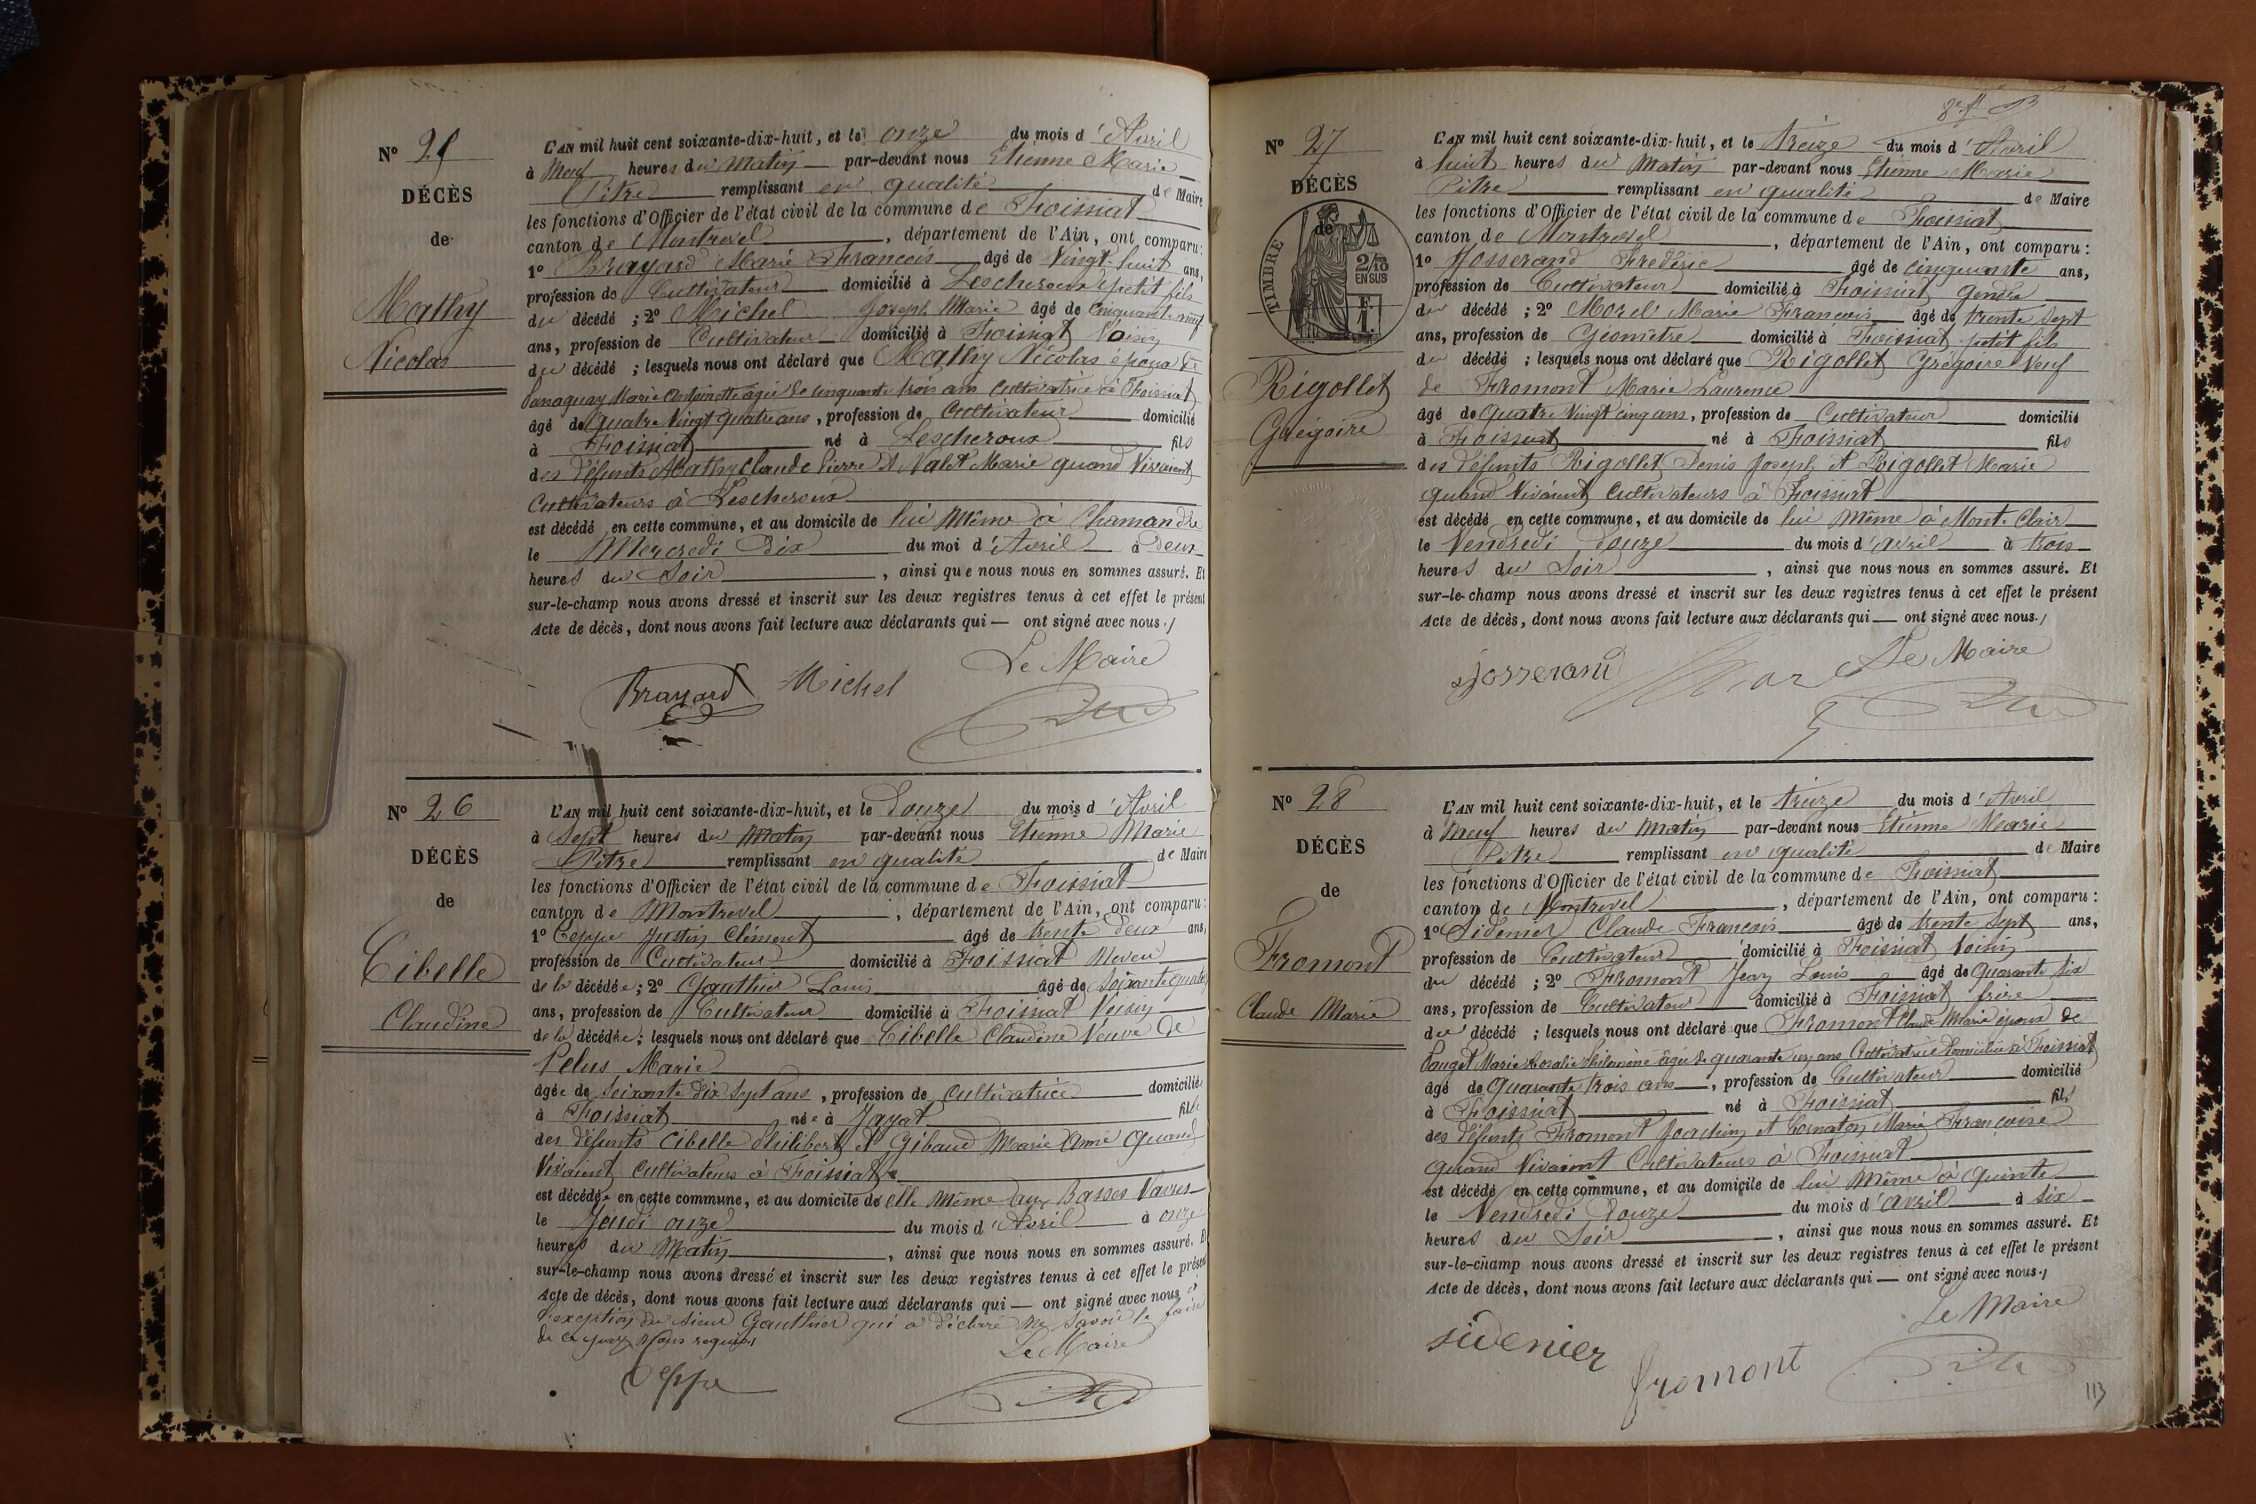 N° 25
DÉCÈS
de
Mathy
Nicolas
L'AN mil huit cent soixante-dix-huit, et le onze du mois d'Avril
à Neuf heures du Matin par-devant nous Etienne Marie
Pitre remplissant en qualité de Maire
les fonctions d'Officier de l'état civil de la commune de Foissiat
canton de Montrevel, département de l'Ain, ont comparu:
1° Brayard Marie François âgé de Vingt huit ans,
profession de Cultivateur domicilié à Lescheroux petit fils
du décédé ; 2° Michel Joseph Marie âgé de Cinquante neuf
ans, profession de Cultivateur domicilié à Foissiat Voisin
du décédé ; lesquels nous ont déclaré que Mathy Nicolas époux de
Marie Antoinette agée de cinquante trois ans Cultivatrice à Foissiat
âgé de Quatre Vingt quatre ans, profession de Cultivateur domicilié
à Foissiat né à Lescheroux fils
des défunts Mathy Claude Pierre et Valet Marie quand Vivaient
Cultivateurs à Lescheroux
est décédé en cette commune, et au domicile de lui Même à Chamandre
le Mercredi Dix du moi d'Avril à Deux
heures du Soir, ainsi que nous nous en sommes assuré. Et
sur-le-champ nous avons dressé et inscrit sur les deux registres tenus à cet effet le présent
Acte de décès, dont nous avons fait lecture aux déclarants qui — ont signé avec nous./
Le Maire
Brayard Michel
Pitre
N° 26
DÉCÈS
de
Cibelle
Claudine
L'AN mil huit cent soixante-dix-huit, et le Douze du mois d'Avril
à Sept heures du Matin par-devant nous Etienne Marie
Pitre remplissant en qualité de Maire
les fonctions d'Officier de l'état civil de la commune de Foissiat
canton de Montrevel, département de l'Ain, ont comparu:
1° Ceppe Justin Clément âgé de trente deux ans,
profession de Cultivateur domicilié à Foissiat Neveu
de la décédée; 2° Gauthier Louis âgé de Soixante quatre
ans, profession de Cultivateur domicilié à Foissiat Voisin
de la décédée; lesquels nous ont déclaré que Cibelle Claudine Veuve de
Pelus Marie
âgée de Soixante Dix Sept ans, profession de Cultivatrice domiciliée
à Foissiat née à Jayat fille
des défunts Cibelle Philibert et Gibaud Marie Aimé quand
Vivaient Cultivateurs à Foissiat
est décédée en cette commune, et au domicile de elle Même aux Basses Vavres
le Jeudi onze du mois d'Avril à onze
heures du Matin, ainsi que nous nous en sommes assuré. Et
sur-le-champ nous avons dressé et inscrit sur les deux registres tenus à cet effet le présent
Acte de décès, dont nous avons fait lecture aux déclarants qui — ont signé avec nous à
l'exception du sieur Gauthier qui a déclaré ne savoir le faire
de ce enquis
Le Maire
Ceppe
Pitre
N° 27
DÉCÈS
de
TIMBRE
2/10
EN SUS
Rigollet
Grégoire
L'AN mil huit cent soixante-dix-huit, et le treize du mois d'Avril
à huit heures du Matin par-devant nous Etienne Marie
Pitre remplissant en qualité de Maire
les fonctions d'Officier de l'état civil de la commune de Foissiat
canton de Montrevel, département de l'Ain, ont comparu:
1° Josserand Frédéric âgé de cinquante ans,
profession de Cultivateur domicilié à Foissiat gendre
du décédé ; 2° Morel Marie François âgé de trente sept
ans, profession de Géomètre domicilié à Foissiat petit fils
du décédé ; lesquels nous ont déclaré que Rigollet Grégoire Veuf
de Fromont Marie Laurence
âgé de Quatre Vingt cinq ans, profession de Cultivateur domicilié
à Foissiat né à Foissiat fils
des défunts Rigollet Denis Joseph et Rigollet Marie
quand Vivaient Cultivateurs à Foissiat
est décédé en cette commune, et au domicile de lui Même à Mont-Clair
le Vendredi Douze du mois d'avril à trois
heures du Soir, ainsi que nous nous en sommes assuré. Et
sur-le-champ nous avons dressé et inscrit sur les deux registres tenus à cet effet le présent
Acte de décès, dont nous avons fait lecture aux déclarants qui — ont signé avec nous./
josserand Morel Le Maire
Pitre
N° 28
DÉCÈS
de
Fromont
Claude Marie
L'AN mil huit cent soixante-dix-huit, et le treize du mois d'Avril
à Neuf heures du Matin par-devant nous Etienne Marie
Pitre remplissant en qualité de Maire
les fonctions d'Officier de l'état civil de la commune de Foissiat
canton de Montrevel, département de l'Ain, ont comparu:
1° Sidenier Claude François âgé de trente sept ans,
profession de Cultivateur domicilié à Foissiat Voisin
du décédé ; 2° Fromont Jean Louis âgé de Quarante Six
ans, profession de Cultivateur domicilié à Foissiat frère
du décédé ; lesquels nous ont déclaré que Fromont Claude Marie époux de
Pouget Marie Rosalie Philomène âgée de quarante un ans Cultivatrice Domiciliée à Foissiat
âgé de Quarante trois ans, profession de Cultivateur domicilié
à Foissiat né à Foissiat fils
des défunts Fromont Joachim et Cornaton Marie Françoise
quand Vivaient Cultivateurs à Foissiat
est décédé en cette commune, et au domicile de lui Même à Quinte
le Vendredi Douze du mois d'avril à six
heures du Soir, ainsi que nous nous en sommes assuré. Et
sur-le-champ nous avons dressé et inscrit sur les deux registres tenus à cet effet le présent
Acte de décès, dont nous avons fait lecture aux déclarants qui — ont signé avec nous./
Le Maire
sidenier
fromont
Pitre
113